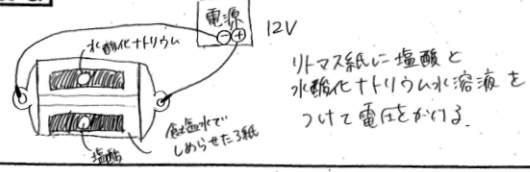 電源
⊖⊕
12V
水酸化ナトリウム
塩酸
食塩水で
しめらせたろ紙
リトマス紙に塩酸と
水酸化ナトリウム水溶液を
つけて電圧をかける.